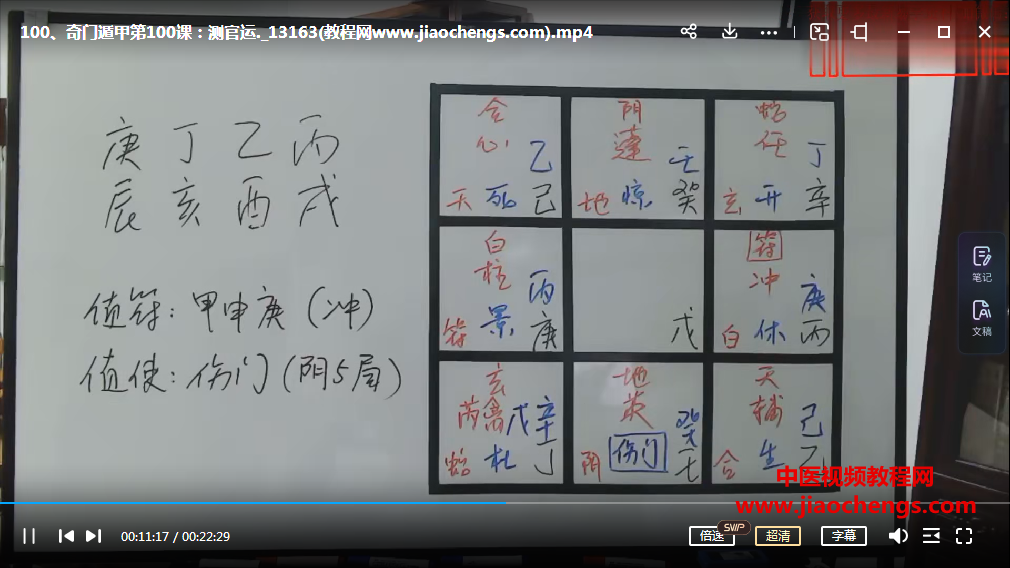 100、奇门遁甲第100课：测官运._13163(教程网www.jiaochengs.com).mp4
庚 丁 乙 丙
辰 亥 酉 戌
值符：甲申庚（冲）
值使：伤门（阴5局）
合
心 乙
天 死 己
阴
蓬 壬
地 惊 癸
蛇
任 丁
玄 开 辛
白
柱 丙
符 景 庚
戊
符
冲 庚
白 休 丙
玄
芮禽 戊 辛
蛇 杜 丁
地
英 癸
阴 伤门 壬
天
辅 己
合 生 乙
笔记
文稿
中医视频教程网
www.jiaochengs.com
00:11:17 / 00:22:29
倍速 SVIP 超清 字幕